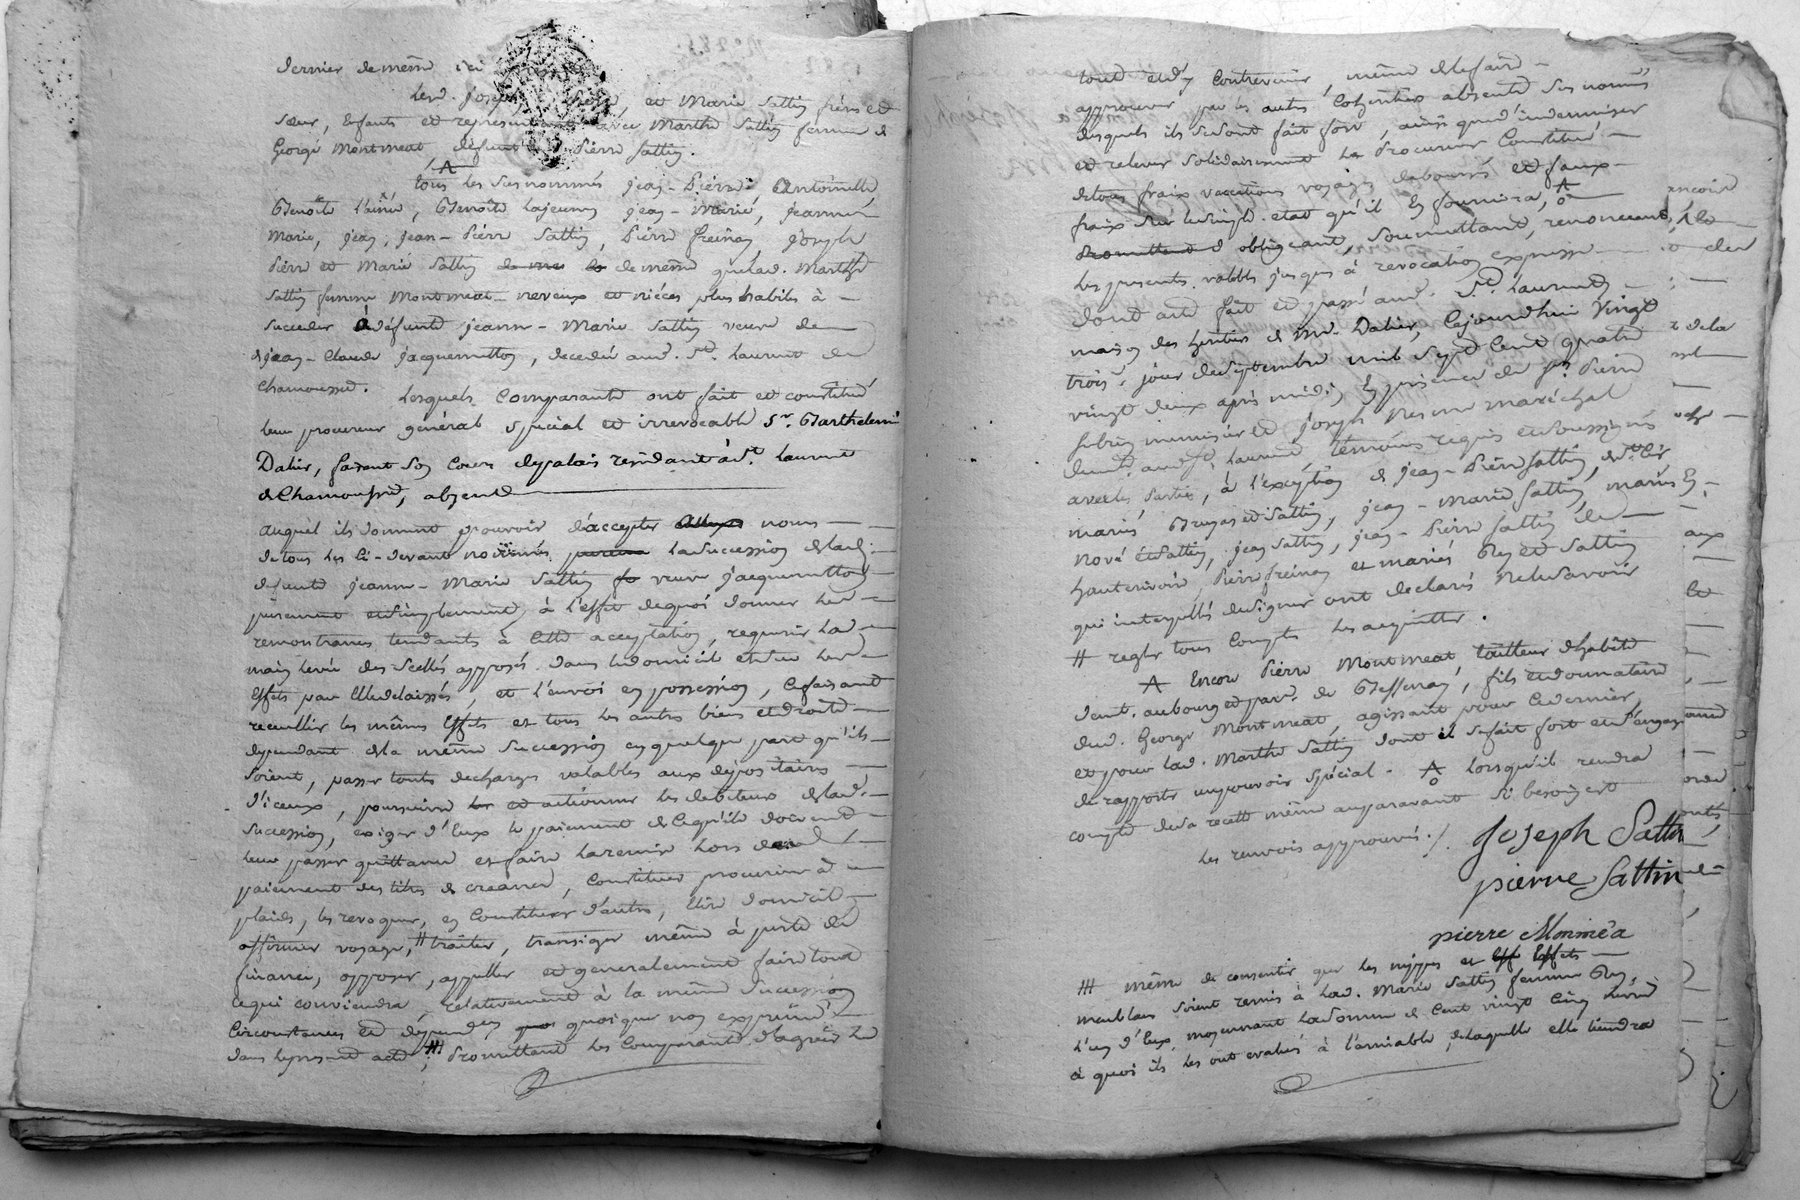 dernier de meme ici
led. Joseph, Pierre, et Marie Sattin frère et
sœur, Enfants et representants avec Marthe Sattin femme de
George Montmeat defunt Pierre Sattin.
A
tous les susnommés jean-Pierre, Antoinette,
Benoîte l'aînée, Benoîte lajeune, jean-Marie, jeanne
Marie, jean, jean-Pierre Sattin, Pierre freinay, joseph
Pierre et Marie Sattin de meme quelad. Marthe
Sattin femme Montmeat neveux et niéces plus habiles à
succeder à défunte jeanne-Marie Sattin veuve de
jean-Claude jacquemetton, decedée aud. St. laurent de
Chamousset.
lesquels Comparants ont fait et constitué
leur procureur général spécial et irrevocable Sr. Barthelemi
Dalier, faisant son Cours depalais residant à St. laurent
de Chamousset, absent
auquel ils donnent pouvoir d'accepter noms
de tous les ci-devant nommés la succession delad.
defunte jeanne-Marie Sattin veuve jacquemetton
purement etsimplement, à l'effet dequoi donner
remontrances tendants à Cette acceptation, requerir la
main levée des Scellés apposés dans ledomicile etsur les
Effets par Elle delaissés, et l'envoi en possession, Cefaisant
recueillir les mêmes Effets et tous les autres biens etdroits
dependant dela même Succession en quelque part qu'ils
soient, passer toute decharges valables aux depositaires
d'iceux, poursuivre et actionner les debiteurs delad.
succession, exiger d'Eux le paiement deCequ'ils doivent
leur passer quittance et faire
paiement des titres de creance, Constituer procureur à
plaids, les revoquer, en Constituer d'autres, élire domicile
affirmer voyage, # traiter, transiger même à perte de
finance, opposer, appeller et generalement faire tout
cequi conviendra, relativement à la même Succession
Circonstances et dépendances quoique non exprimé
dans lepresent acte, ## Promettant les Comparants d'agréer le
tout etd'y Contrevenir, même delefaire
approuver par les autres Cohéritiers absents sus nommés
desquels ils sesont fait fort, ainsi qued'indemniser
et relever solidairement le Procureur Constitué
detous fraix vacations voyages debourés et faux
fraix sur lesimple etat qu'il En fournira, A
Promettant obligeant, soumettant, renonceant,
les presentes valables jusques à revocation expresse
dont acte fait et passé aud. St. laurent
maison des heritiers de Me. Dalier, Cejourdhui Vingt
trois jour deseptembre mil sept Cent quatre
vingt deux après midi, En presence de Pierre
et joseph maréchal
aud St. laurent témoins requis etsoussignés
avecles Parties, à l'exception de jean-Pierre Sattin,
mariés Bruyas et Sattin, jean-Marie Sattin, mariés
Nové et Sattin, jean Sattin, jean-Pierre Sattin de
hauterivoire, Pierre freinay et mariés Rey et Sattin
qui interpellés designer ont declarés nelesavoir
# regler tous Comptes les acquitter.
A Encore Pierre Montmeat tailleur d'habits
demt. au bourg et parr. de Bessenay, fils etdonnataire
dud. George Montmeat, agissant pour Cedernier,
et pour lad. Marthe Sattin dont il sefait fort et s'engage
de rapporter unpouvoir spécial. A lorsqu'il rendra
compte desa recette même auparavant si besoin est
les renvois approuvés./. Joseph Sattin
pierre Sattin
pierre Monméa
## même de consentir que les nippes et Effets
meublans soient remis à lad. Marie Sattin femme Rey,
l'un d'Eux, moyennant lasomme de Cent vingt Cinq livres
à quoi ils les ont evalués à l'amiable, delaquelle elle tiendra